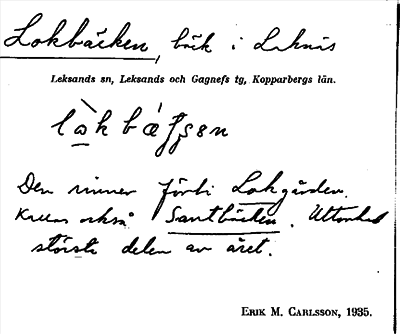 Lokbäcken, bäck i Leknäs
Leksands sn, Leksands och Gagnefs tg, Kopparbergs län.
Den rinner förbi Lokgården.
Kallas också Santbäcken. Uttorkad
största delen av året.
ERIK M. CARLSSON, 1935.